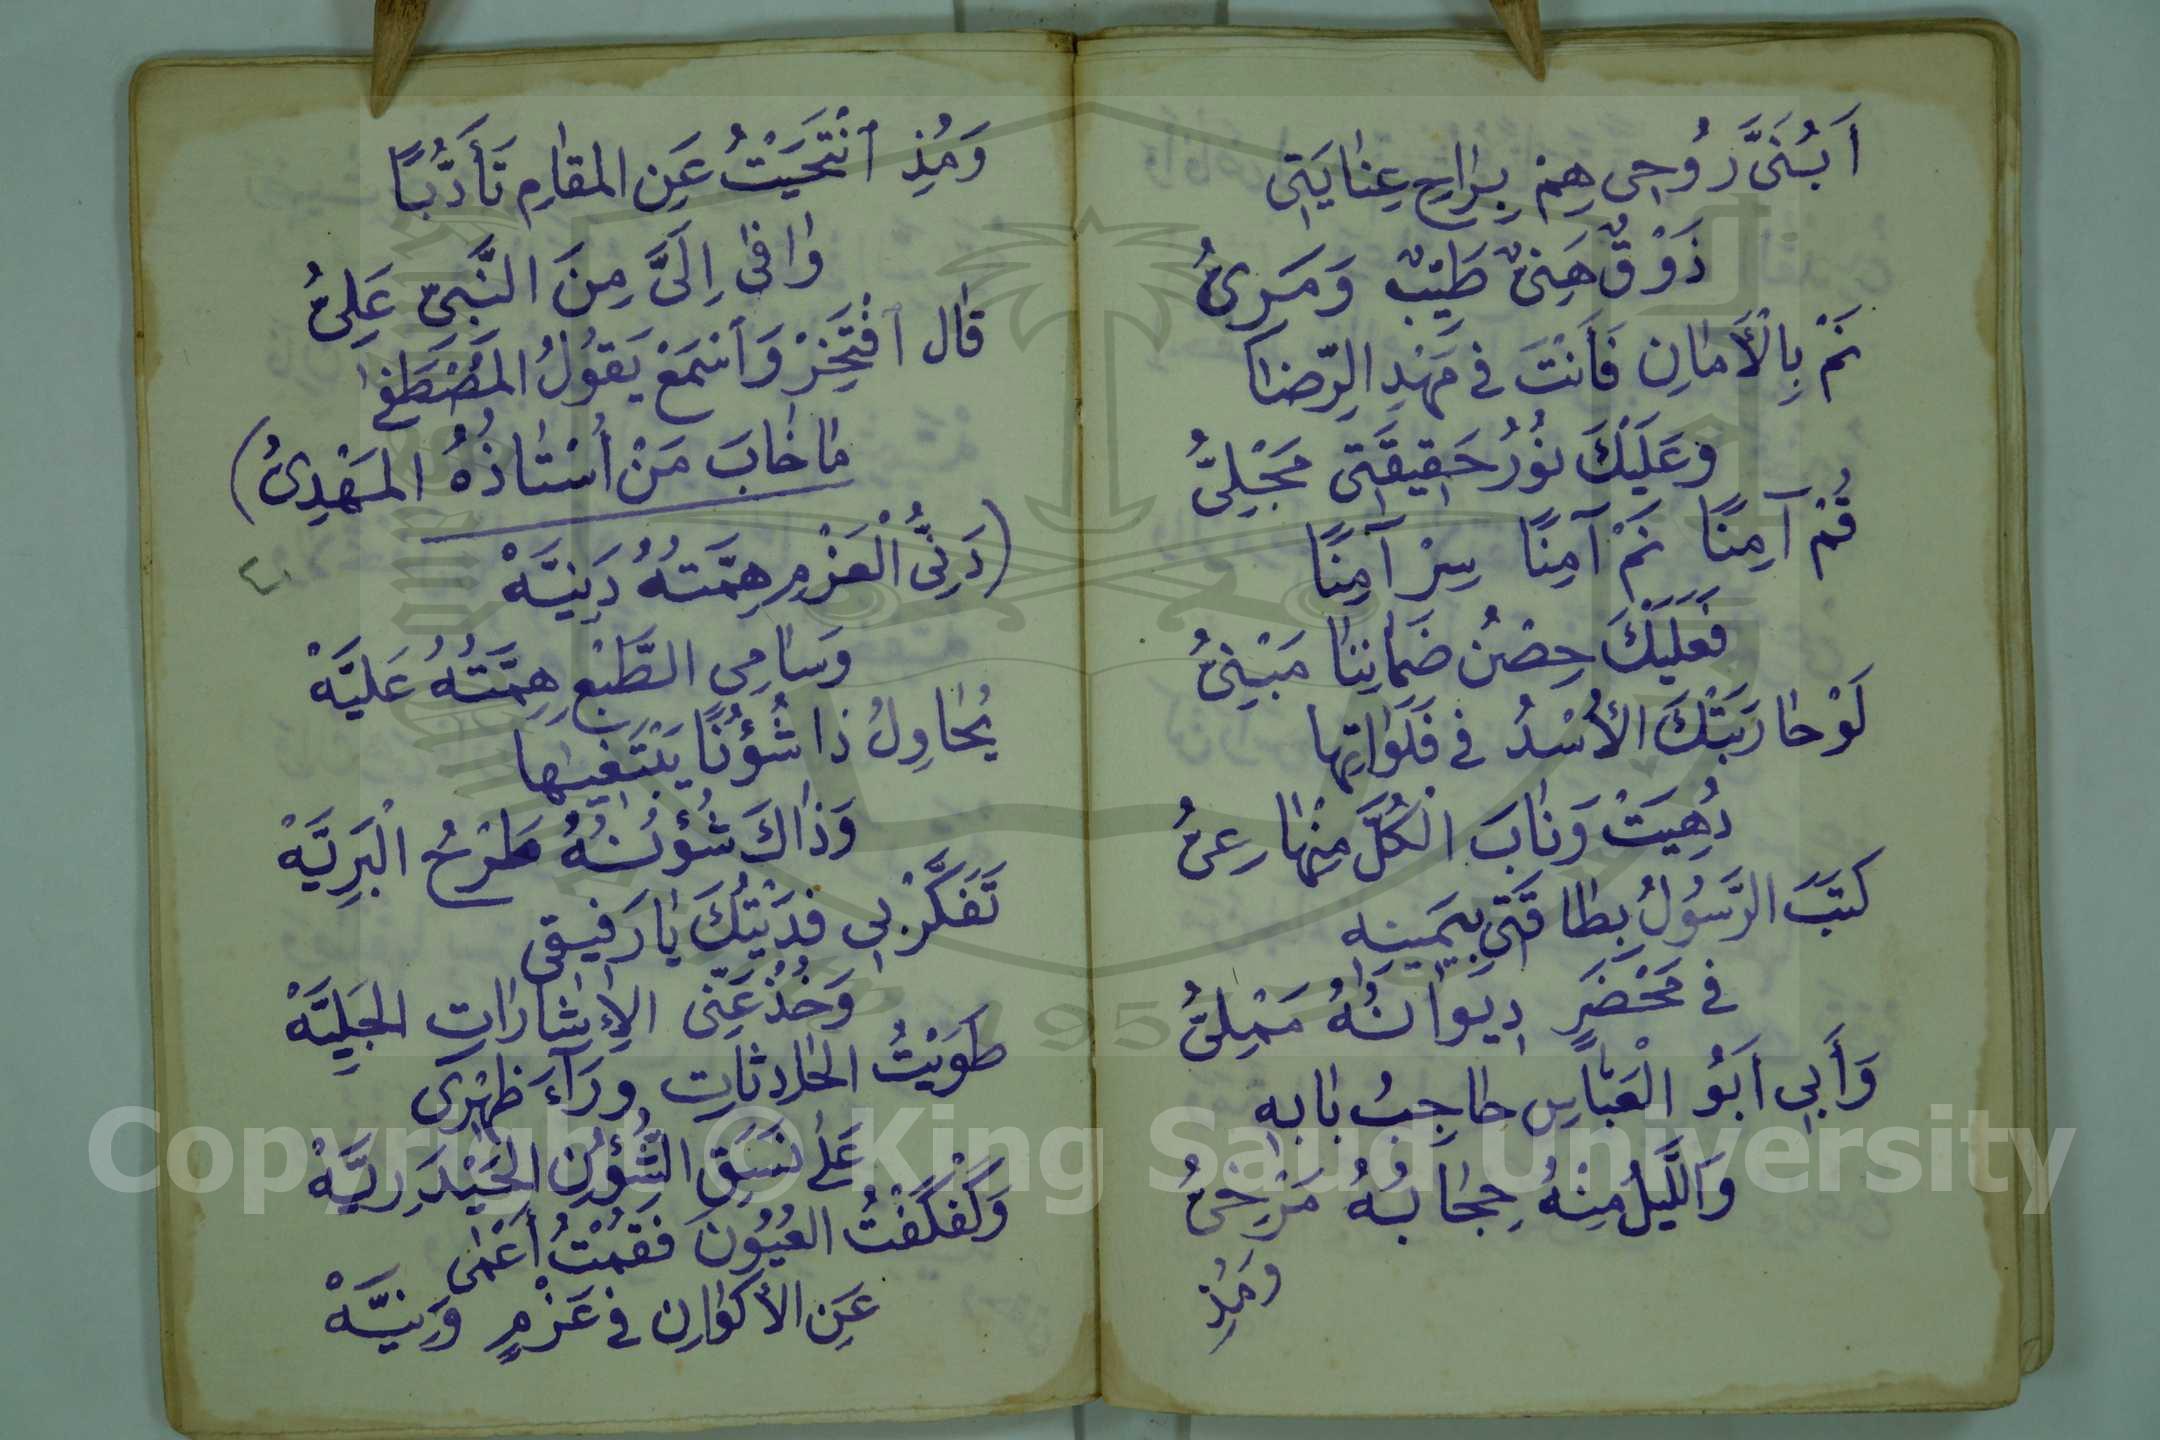 أَبُنَيَّ رُوحِى هِمْ بِرَاحِ عِنَايَتِى
ذَوْقٌ هَنِىٌّ طَيِّبٌ وَمَرِىُّ
نَمْ بِالْأَمَانِ فَأَنْتَ فِى مَهْدِ الرِّضَا
وَعَلَيْكَ نُوْرُ حَقِيقَتِى مَجْلِىُّ
قُمْ آمِنًا نَمْ آمِنًا سِرْ آمِنًا
فَعَلَيْكَ حِصْنُ ضَمَانِنَا مَبْنِىُّ
لَوْ حَارَبَتْكَ الأُسْدُ فِى فَلَوَاتِهَا
دُهِيَتْ وَنَابَ الْكُلَّ مِنْهَا عِىُّ
كَتَبَ الرَّسُوْلُ بِطَاقَتِى بِيَمِينِهِ
فِى مَحْضَرٍ دِيوَانُهُ مَمْلِىُّ
وَأَبِي أَبُو الْعَبَّاسِ حَاجِبُ بَابِهِ
وَاللَّيْلُ مِنْهُ حِجَابُهُ مَرْخِىُّ
وَمُذِ
وَمُذِ انْتَحَيْتُ عَنِ المَقَامِ تَأَدُّبًا
وَافَى إِلَىَّ مِنَ النَّبِىِّ عَلِىُّ
قَال افْتَخِرْ وَاسْمَعْ يَقُوْلُ المُصْطَفَى
مَا خَابَ مَنْ أُسْتَاذُهُ المَهْدِىُّ)
(دَنِىُّ الْعَزْمِ هِمَّتُهُ دَنِيَّهْ
وَسَامِي الطَّبْعِ هِمَّتُهُ عَلِيَّهْ
يُحَاوِلُ ذَا شُؤُنًا يَبْتَغِيهَا
وَذَاكَ شُؤُنُهُ طَرْحُ الْبَرِيَّهْ
تَفَكَّرْ بِي فَدَيْتُكَ يَا رَفِيقِى
وَخُذْ عَنِّى الإِشَارَاتِ الجَلِيَّهْ
طَوَيْتُ الحَادِثَاتِ وَرَآءَ ظَهْرِى
عَلَى نَسَقِ الشُّؤُنِ الحَيْدَرِيَّهْ
وَكَفْكَفْتُ العُيُوْنَ فَقُمْتُ أَعْمَى
عَنِ الأَكْوَانِ فِى عَزْمٍ وَنِيَّهْ
Copyright © King Saud University